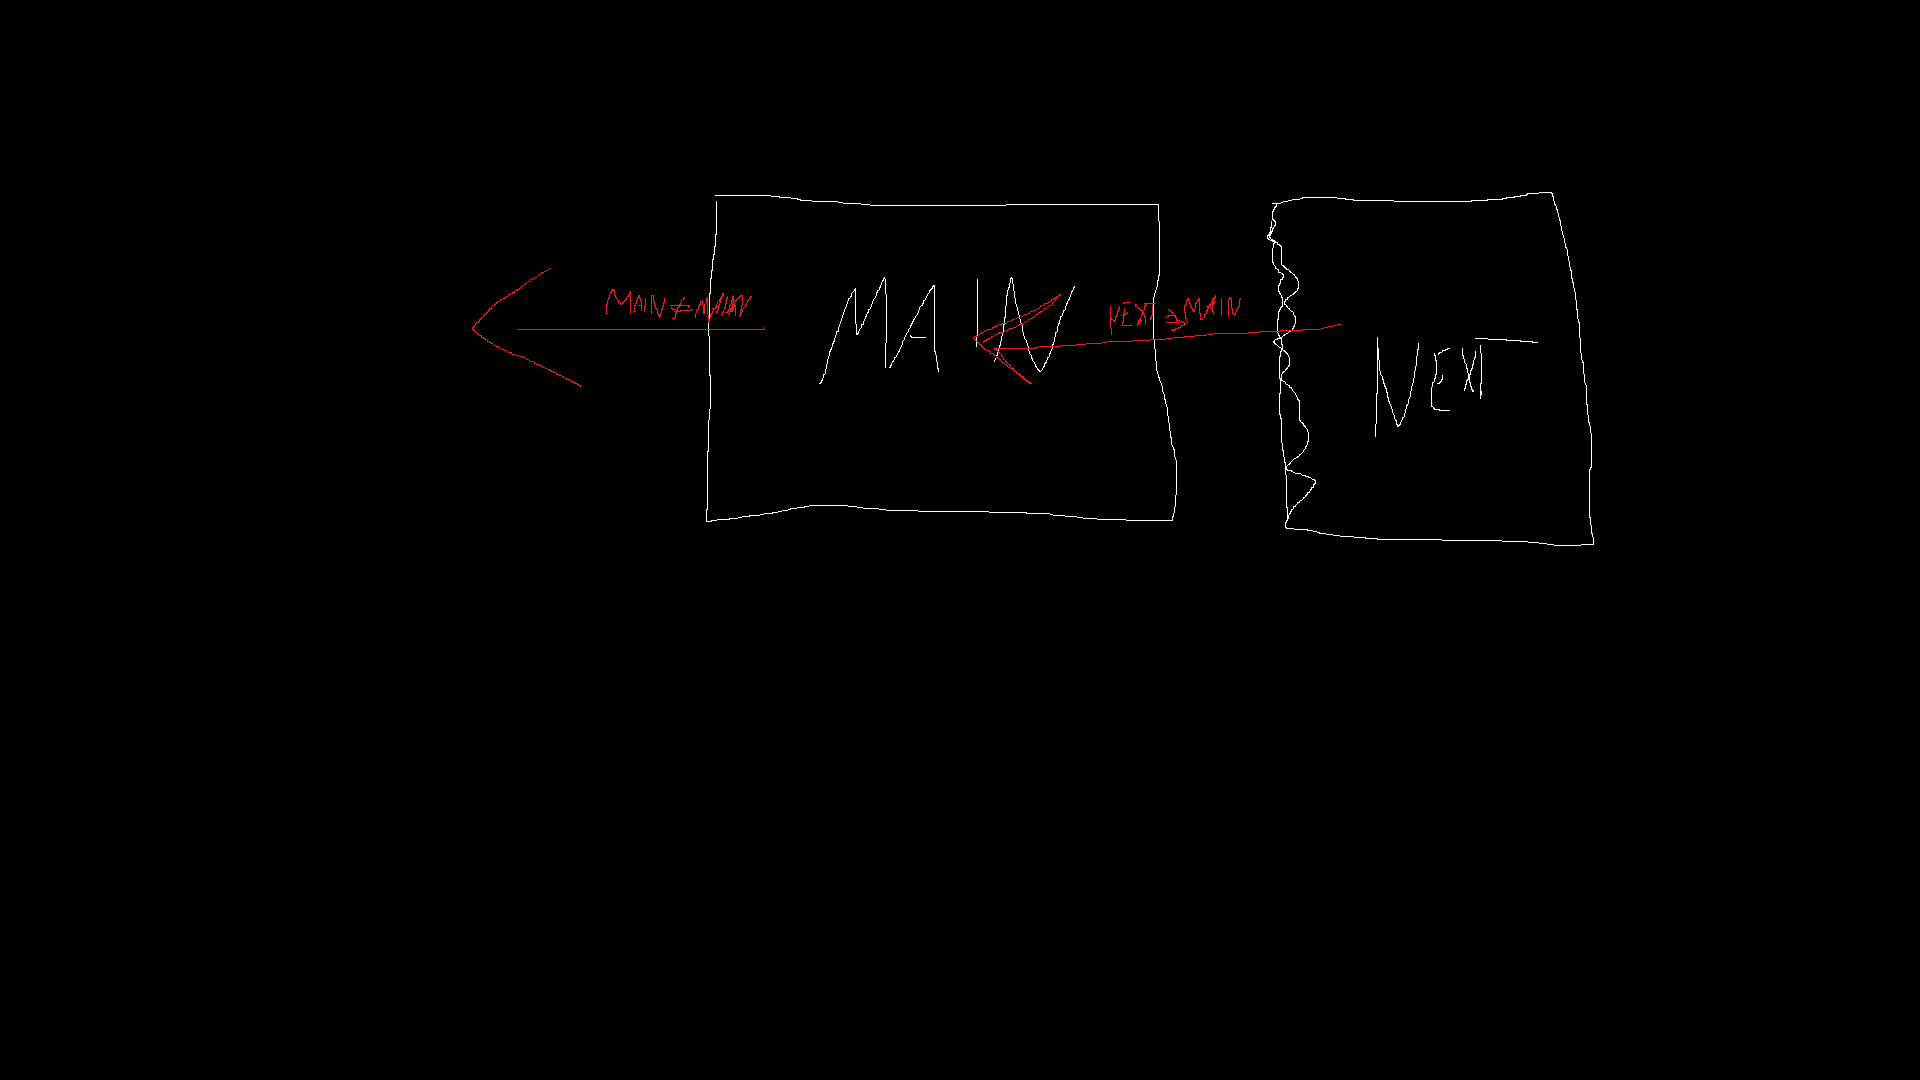 MAIN ≠ MAIN
MAIN
NEXT → MAIN
NEXT